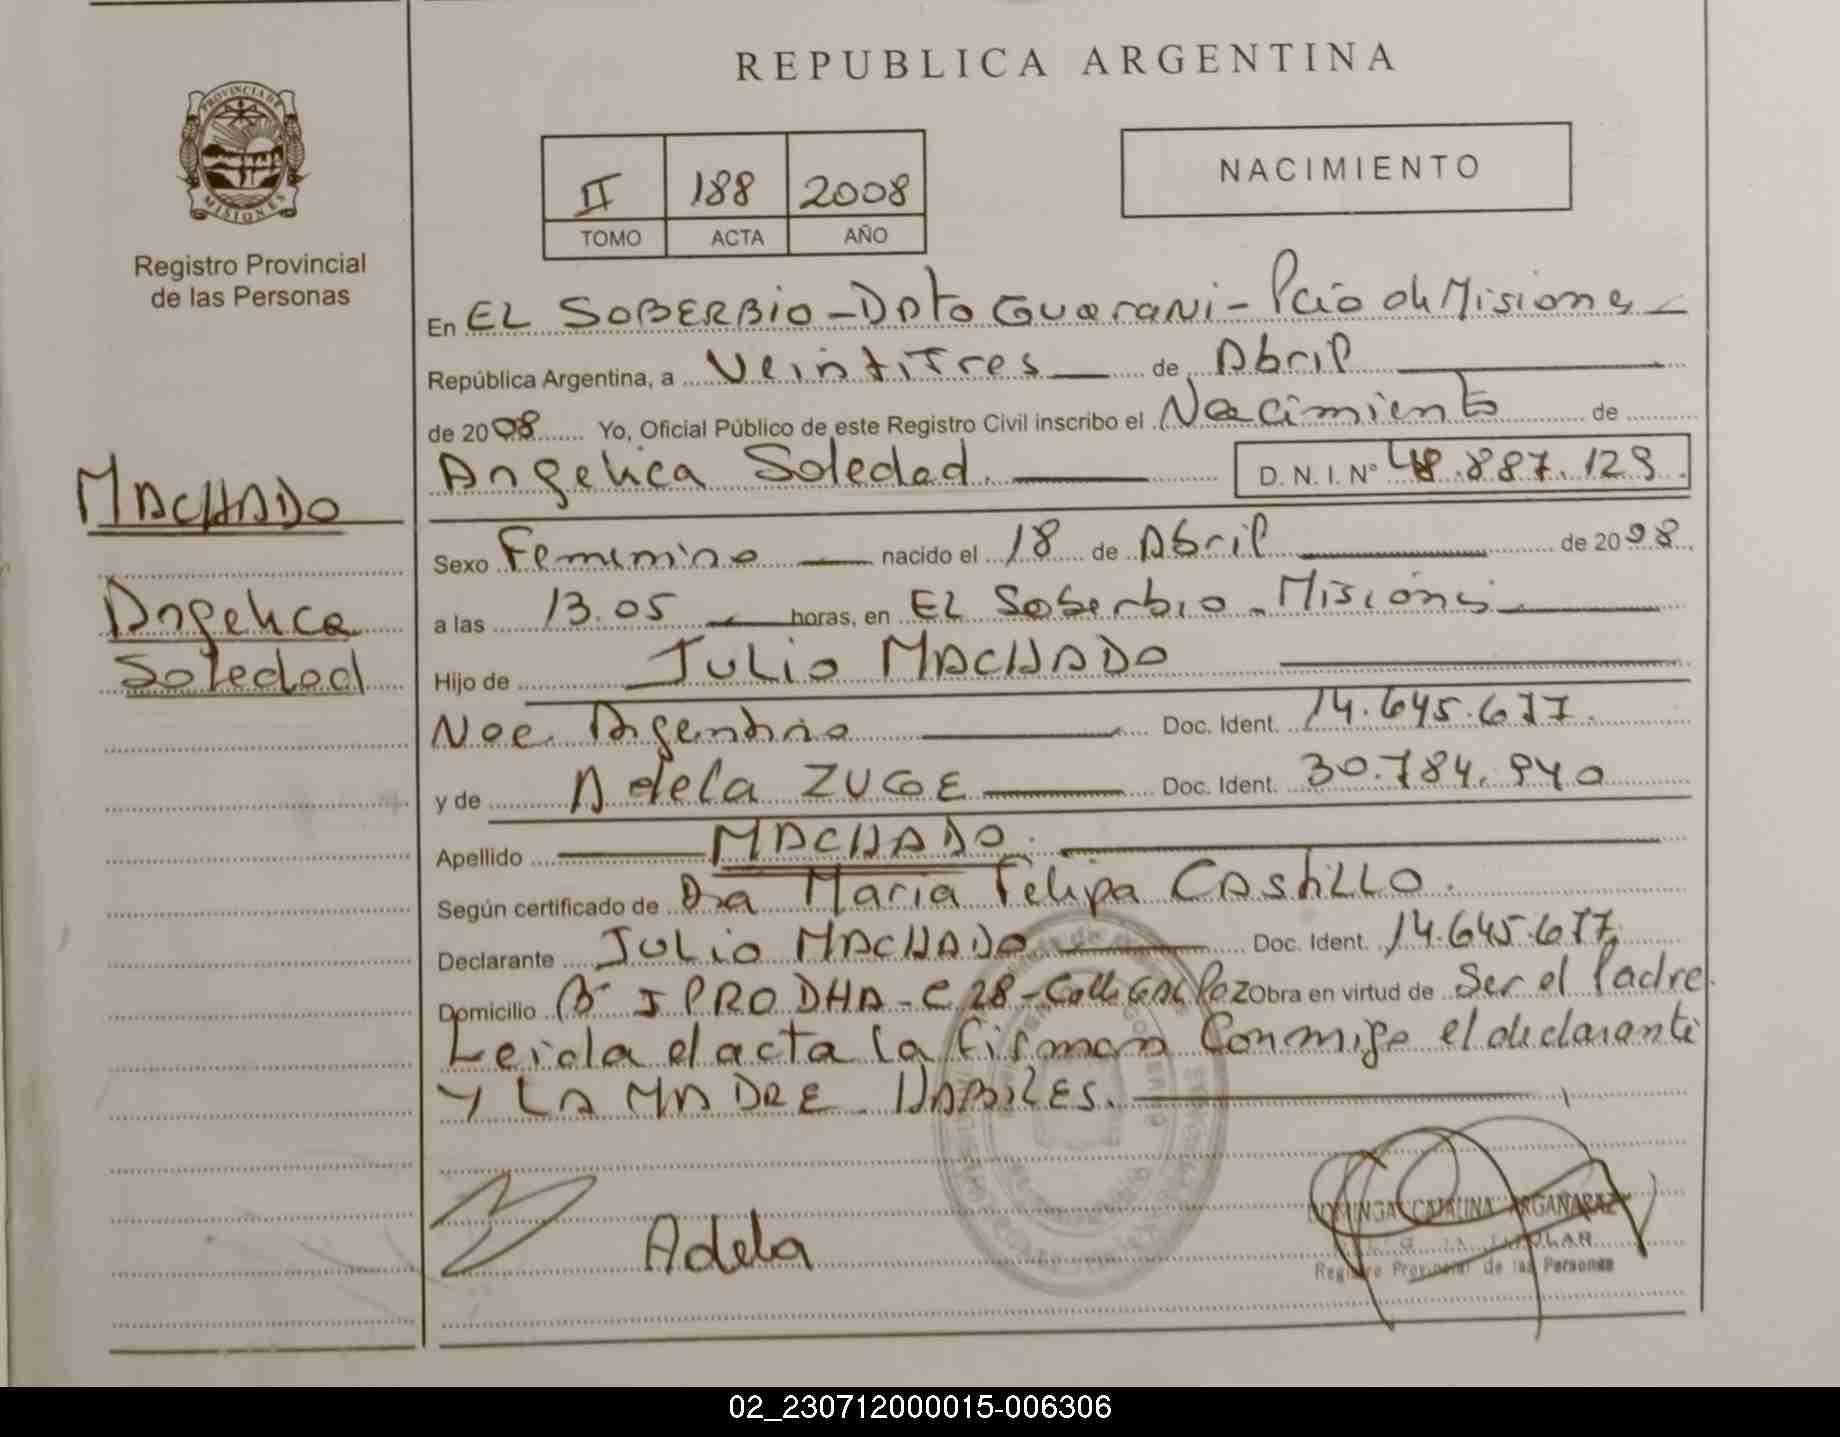 REPUBLICA ARGENTINA
PROVINCIA DE
MISIONES
Registro Provincial
de las Personas
II 188 2008
TOMO ACTA AÑO
NACIMIENTO
En EL SOBERBIO - Dpto Guarani - Pcia de Misiones
República Argentina, a Veintitres de Abril
de 2008 Yo, Oficial Público de este Registro Civil inscribo el Nacimiento de
Angelica Soledad. D.N.I. Nº 48.887.129.
MACHADO
Angelica
Soledad
Sexo Femenino nacido el 18 de Abril de 2008
a las 13.05 horas, en EL Soberbio - Misiones
Hijo de JULIO MACHADO
Nac. Argentina Doc. Ident. 14.645.677.
y de Adela ZUGE Doc. Ident. 30.784.940
Apellido MACHADO.
Según certificado de Dra Maria Felipa CAstiLLO.
Declarante JULIO MACHADO Doc. Ident. 14.645.677
Domicilio Bº IPRODHA - C 28 - Calle Obra en virtud de Ser el Padre.
Leida el acta la firman Conmigo el declarante
Y LA MADRE HABILES.
Adela
DOMINGA CATALINA ARGAÑARAZ
TITULAR
Registro Provincial de las Personas
02_230712000015-006306